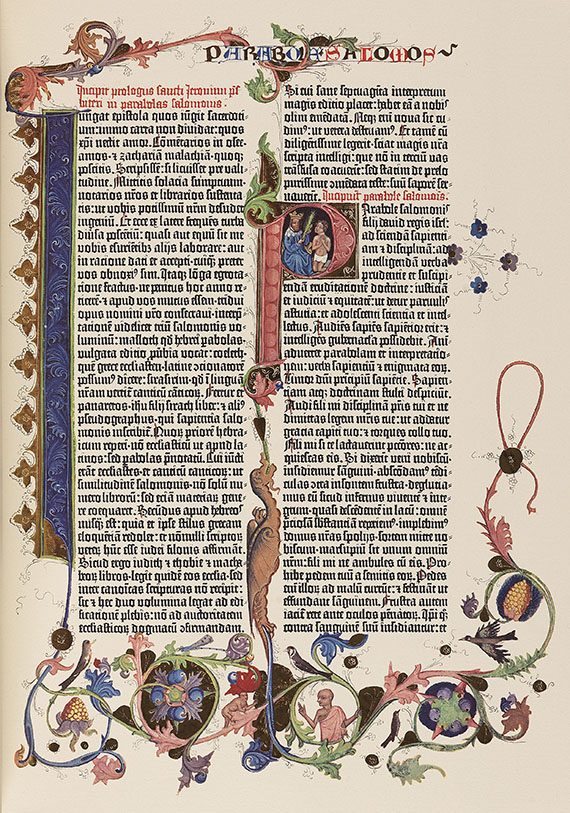 PARABOLE SALOMOIS
Incipit prologus sancti Jeronimi p̄s=
biteri in parabolas salomonis.
Iungat epistola quos iūgit sacerdoti=
um: immo carta non diuidat: quos
xp̄i nectit amor. Cōmētarios in osee.
amos ⁊ zachariā malachiā· quoq;
poscitis. Scripsissē: si licuisset pre vali=
tudine. Mittitis solacia sumptuum·
notarios nr̄os et librarios sustenta=
tis: ut vobis potissimū nr̄m desudet
ingeniū. Et ecce ex latere freq̄ns turba
diūsa poscentiū: quasi aut equū sit me
vobis esuriētib; alijs laborare: aut
in ratione dati et accepti· cuiq̄ȝ preter
vos obnoxi9 sim. Itaq; lōga egrota=
tione fractus· ne penitus hoc anno re=
ticerē· ⁊ apud vos mutus essem· tridui
opus nomini vr̄o consecraui· interp̄=
tationē videlicet triū salomonis vo=
luminū: masloth qd̄ hebrei pabolas·
vulgata editio puerbia vocat: coeleth·
quē grece ecclesiasten· latine ⁊cionatorē
possum9 dicere: sirasirim· qd̄ ī linguā
nr̄am vertit̄ canticū canticoɍ. Fertur et
panaretos· ihu filij sirach liber: ⁊ ali9
pseudographus· qui sapientia salo=
monis inscribit̄. Quoɍ priorē hebra=
icum repperi· nō ecclesiasticū ut apud la=
tinos: sed pabolas p̄notatū. Cui iūcti
erāt ecclesiastes· et canticū canticoɍ: ut
similitudinē salomonis· nō solū nu=
mero libroɍ: sed etiā materiaɍ gene=
re coequaret. Secūdus apud hebreos
nusq̄ȝ est: quia et ipse stilus grecam
eloquētiā redolet: et nōnulli scriptoɍ
veteɍ hūc esse iudei filonis affirmāt.
Sicud ergo iudith ⁊ thobie ⁊ macha=
beoɍ libros· legit quidē eos ecclesia· sed
inter canonicas scripturas nō recipit:
sic ⁊ hec duo volumina legat ad edi=
ficationē plebis: nō ad auctoritatem
ecclesiasticoɍ dogmatū ⁊firmandam.
Si cui sane septuaginta interpretum
magis editio placet: habet eā a nobis
olim emēdatā. Neq; enī noua sic cu=
dim9: ut vetera destruam9. Et tamē cū
diligētissime legerit· sciat magis nr̄a
scripta intelligi: que nō in terciū vas
trāsfusa coacuerīt: sed statim de prelo
purissime ⁊mēdata teste: suū saporē ser=
uauerīt. Incipiūt parabole salomonis.
Parabole salomonis
filij dauid regis isrl̄:
ad sciendā sapienti=
am ⁊ disciplinā: ad
intelligendā verba
prudentie et suscipi=
endā eruditationē doctrine: iusticiā
et iudiciū ⁊ equitatē: ut detur paruulis
astutia: et adolescenti scientia et intel=
lectus. Audiēs sapiēs sapiētior erit: ⁊
intelligēs gubernacla possidebit. Ani=
aduertet parabolam et interpretatio=
nem: verba sapientiū ⁊ enigmata eoɍ.
Timor dn̄i principiū sapiētie. Sapien=
tiam atq; doctrinam stulti despiciūt.
Audi fili mi disciplinā pr̄is tui et ne
dimittas legem mr̄is tue: ut addatur
gratia capiti tuo: ⁊ torques collo tuo.
Fili mi si te lactauerint pctōres: ne ac=
quiescas eis. Si dixerīt veni nobiscū·
insidiemur sanguini· abscōdam9 tedi=
culas ⁊tra insontem frustra· deglutia=
mus eū sicud infernus viuentē ⁊ inte=
grum· quasi descēdentē in lacū: omnē
p̄ciosā substantiā repeiem9· implebim9
domus nr̄as spolijs· sortem mitte no=
biscum· marsupiū sit vnum omniū
nr̄um: fili mi ne ambules cū eis. Pro=
hibe pedem tuū a semitis eoɍ. Pedes
eni illoɍ ad malū currūt: ⁊ festināt ut
effundant sanguinem. Frustra autem
iacit̄ rete ante oculos pēnatoɍ. Ipi q̄3
contra sanguinē suū insidiantur: et